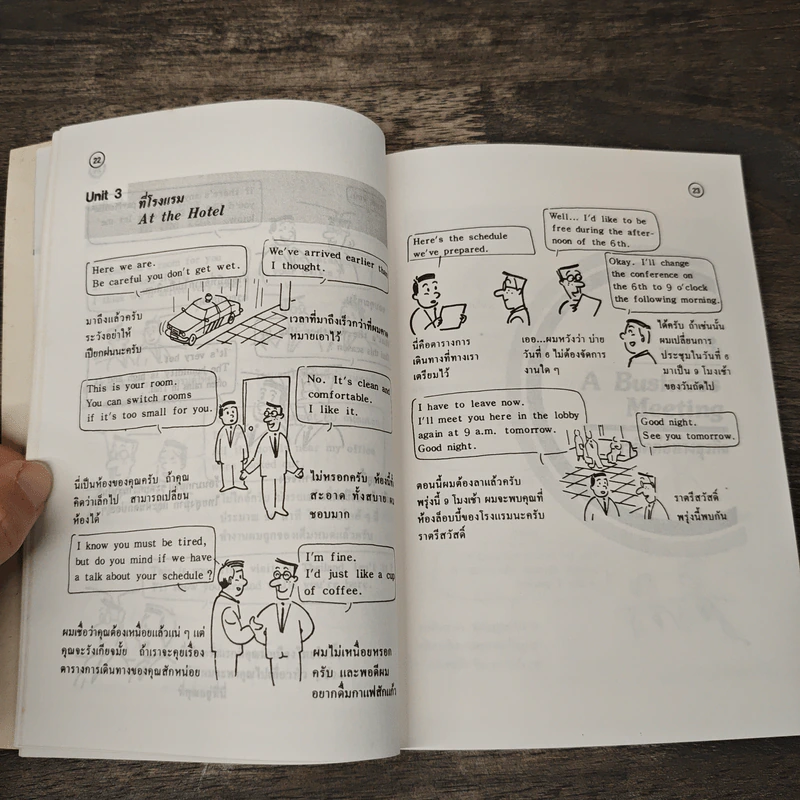 22
Unit 3
ที่โรงแรม
At the Hotel
Here we are.
Be careful you don't get wet.
We've arrived earlier than
I thought.
มาถึงแล้วครับ
ระวังอย่าให้
เปียกฝนนะครับ
เวลาที่มาถึงเร็วกว่าที่ผมคาด
หมายเอาไว้
This is your room.
You can switch rooms
if it's too small for you.
No. It's clean and
comfortable.
I like it.
นี่เป็นห้องของคุณครับ ถ้าคุณ
คิดว่าเล็กไป สามารถเปลี่ยน
ห้องได้
ไม่หรอกครับ ห้องนี้ทั้ง
สะอาด ทั้งสบาย ผม
ชอบมาก
I know you must be tired,
but do you mind if we have
a talk about your schedule ?
I'm fine.
I'd just like a cup
of coffee.
ผมเชื่อว่าคุณต้องเหนื่อยแล้วแน่ ๆ แต่
คุณจะรังเกียจมั้ย ถ้าเราจะคุยเรื่อง
ตารางการเดินทางของคุณสักหน่อย
ผมไม่เหนื่อยหรอก
ครับ และพอดีผม
อยากดื่มกาแฟสักแก้ว
23
Here's the schedule
we've prepared.
Well... I'd like to be
free during the after-
noon of the 6th.
Okay. I'll change
the conference on
the 6th to 9 o'clock
the following morning.
นี่คือตารางการ
เดินทางที่ทางเรา
เตรียมไว้
เออ...ผมหวังว่า บ่าย
วันที่ 6 ไม่ต้องจัดการ
งานใด ๆ
ได้ครับ ถ้าเช่นนั้น
ผมเปลี่ยนการ
ประชุมในวันที่ 6
มาเป็น 9 โมงเช้า
ของวันถัดไป
I have to leave now.
I'll meet you here in the lobby
again at 9 a.m. tomorrow.
Good night.
Good night.
See you tomorrow.
ตอนนี้ผมต้องลาแล้วครับ
พรุ่งนี้ 9 โมงเช้า ผมจะพบคุณที่
ห้องล็อบบี้ของโรงแรมนะครับ
ราตรีสวัสดิ์
ราตรีสวัสดิ์
พรุ่งนี้พบกัน
A Business
Meeting